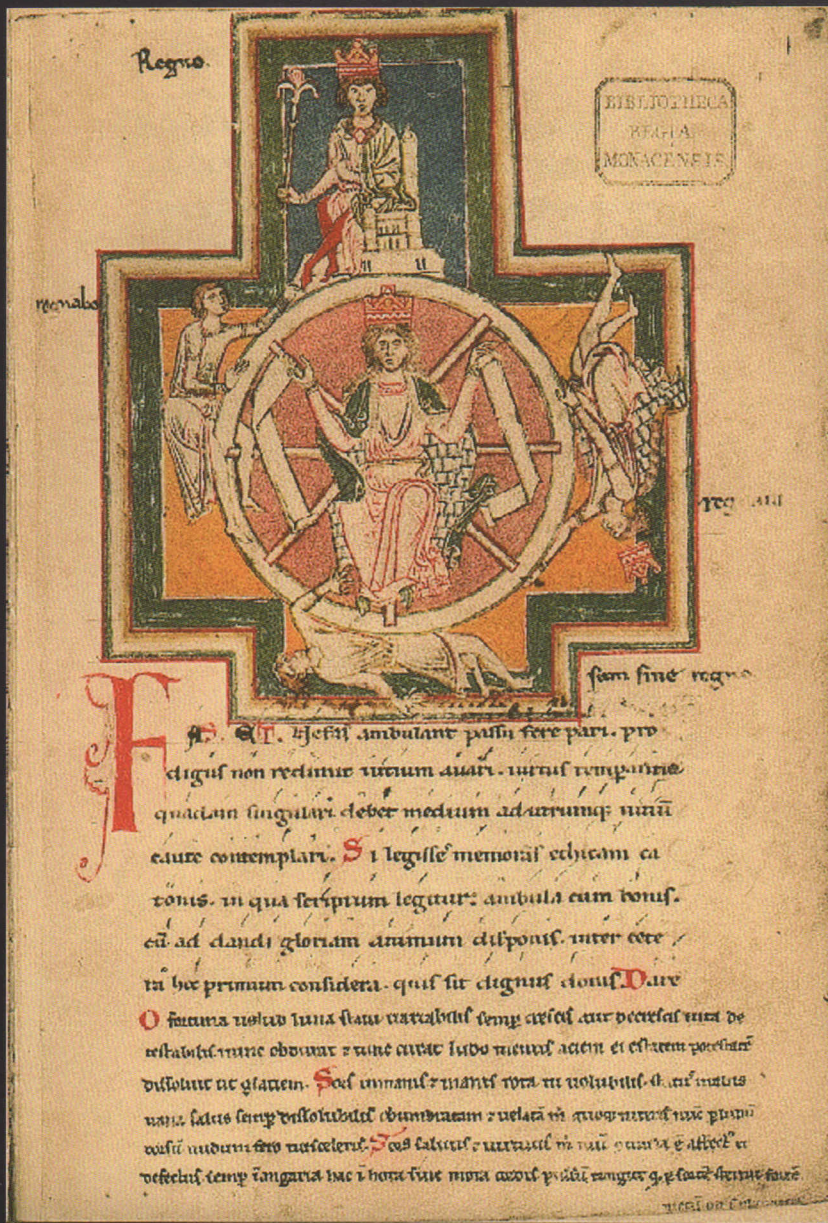 Regno
BIBLIOTHECA
REGIA
MONACENSIS
regnabo
sum sine regno
FAS ET Nefas ambulant passu fere pari. pro
digus non redimit uitium auari. uirtus temperantia
quadam singulari debet medium ad utrumq; uitiū
caute contemplari. Si legisse memoras ethicam ca
tonis. in qua scriptum legitur: ambula cum bonis.
cū ad dandi gloriam animum disponis. inter cete
ra hoc primum considera. quis sit dignus donis. Dare
O fortuna uelud luna statu uariabilis semp̄ crescis aut decrescis uita de
testabilis nunc obdurat ⁊ tunc curat ludo mentis aciem egestatem potestatē
dissoluit ut glaciem. Sors immanis ⁊ inanis rota tu uolubilis. status malus
uana salus semp̄ dissolubilis obumbratam ⁊ uelatā m̄ quoq;
nudum fero tui sceleris. Sors salutis ⁊ uirtutis m̄
defectus semp̄ ī angaria hac ī hora sine mora